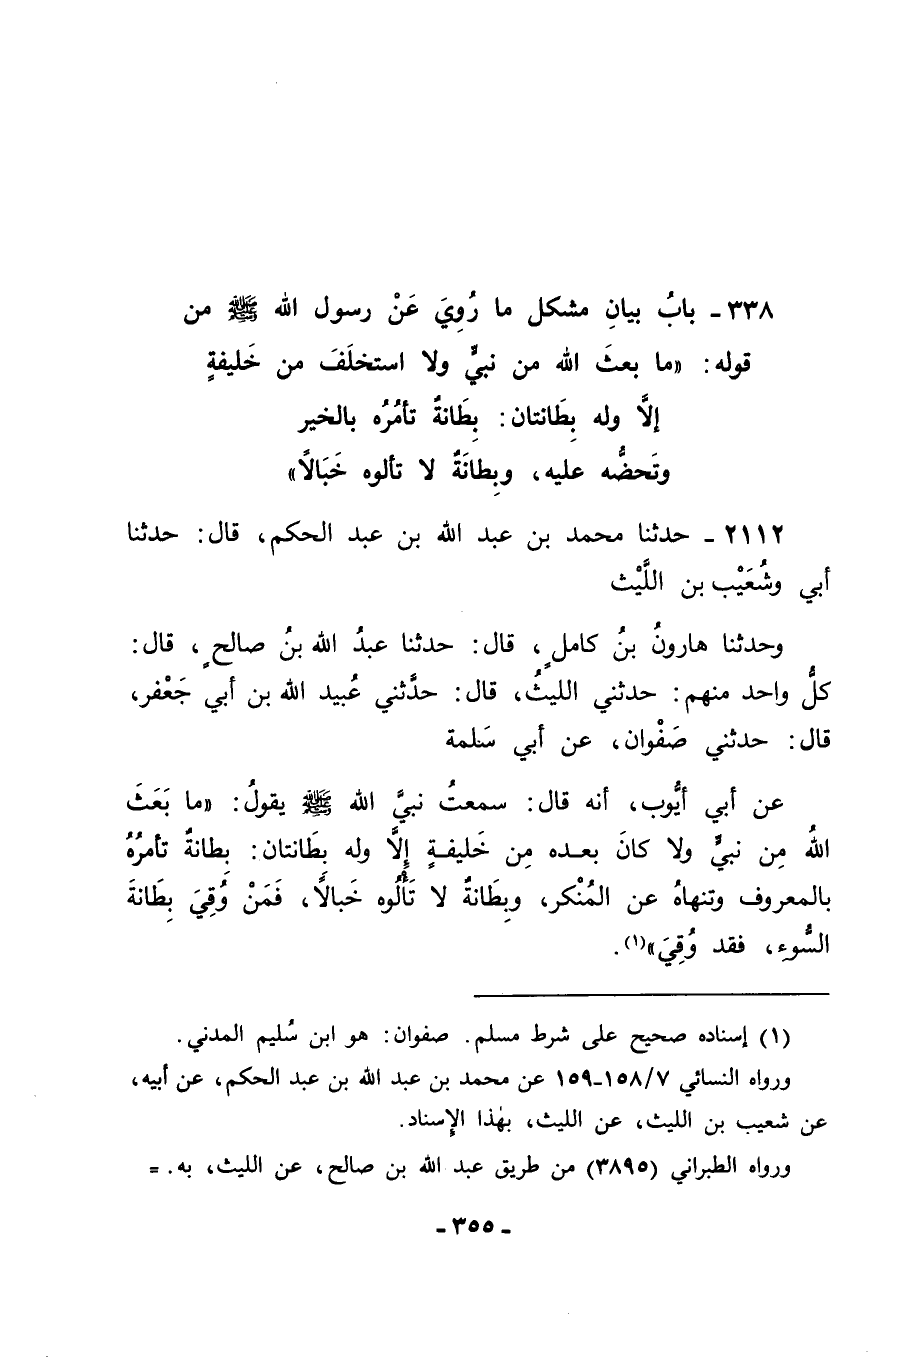 ٣٣٨ - بابُ بيانِ مشكل ما رُوِيَ عَنْ رسول الله ﷺ من
قوله: «ما بعثَ الله من نبيٍّ ولا استخلَفَ من خَليفةٍ
إلَّا وله بِطَانتان: بِطَانةٌ تأمُرُه بالخير
وتَحضُّه عليه، وبِطانَةٌ لا تألوه خَبَالًا»
٢١١٢ - حدثنا محمد بن عبد الله بن عبد الحكم، قال: حدثنا
أبي وشُعَيْب بن اللَّيْث
وحدثنا هارونُ بنُ كاملٍ، قال: حدثنا عبدُ الله بنُ صالحٍ، قال:
كلُّ واحد منهم: حدثني الليثُ، قال: حدَّثني عُبيد الله بن أبي جَعْفر،
قال: حدثني صَفْوان، عن أبي سَلمة
عن أبي أيُّوب، أنه قال: سمعتُ نبيَّ الله ﷺ يقولُ: «ما بَعَثَ
اللهُ مِن نبيٍّ ولا كانَ بعده مِن خَليفةٍ إِلَّا وله بِطَانتان: بِطانةٌ تأمرُهُ
بالمعروف وتنهاهُ عن المُنْكر، وبِطَانةٌ لا تَأْلُوه خَبالًا، فَمَنْ وُقِيَ بِطَانةَ
السُّوءِ، فقد وُقِيَ»(١).
(١) إسناده صحيح على شرط مسلم. صفوان: هو ابن سُليم المدني.
ورواه النسائي ١٥٨/٧-١٥٩ عن محمد بن عبد الله بن عبد الحكم، عن أبيه،
عن شعيب بن الليث، عن الليث، بهٰذا الإِسناد.
ورواه الطبراني (٣٨٩٥) من طريق عبد الله بن صالح، عن الليث، به. =
- ٣٥٥ -